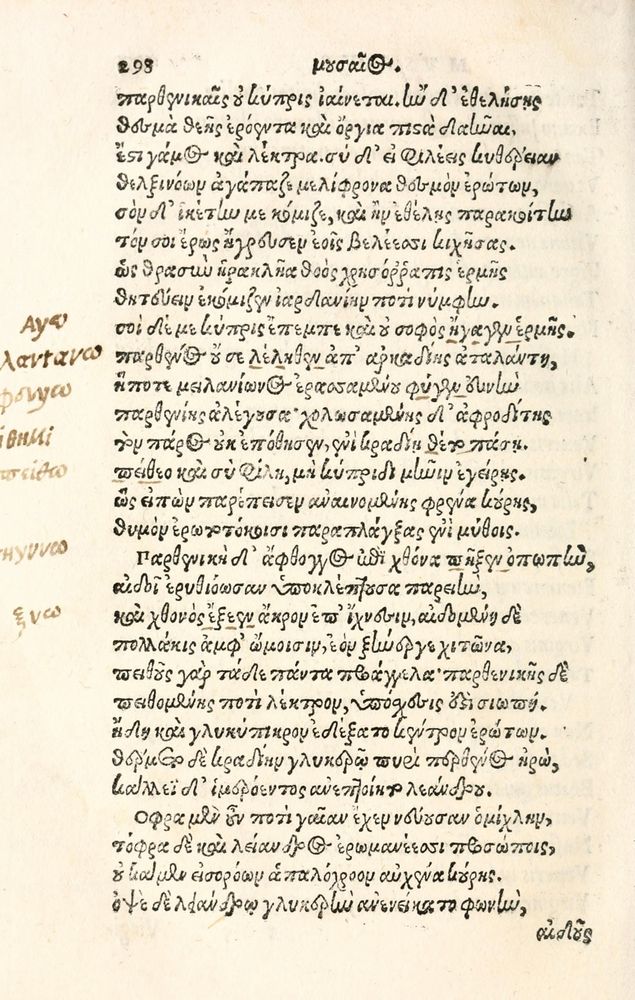 298 μουσαῖος.
παρθενικαῖς οὐ κύπρις ἰαίνεται. ἢν δ' ἐθελήσῃς
θεσμὰ θεῆς ἐρόεντα καὶ ὄργια πιστὰ δαῶναι,
ἔστι γάμος καὶ λέκτρα. σὺ δ' εἰ φιλέεις κυθέρειαν
θελξινόων ἀγάπαζε μελίφρονα θεσμὸν ἐρώτων,
σὸν δ' ἱκέτην με κόμιζε, καὶ ἢν ἐθέλῃς παρακοίτην
τόν σοι ἔρως ἤγρευσεν ἑοῖς βελέεσσι κιχήσας.
ὡς θρασὺν ἡρακλῆα θοὸς χρυσόρραπις ἑρμῆς
θητεύειν ἐκόμιζεν ἰαρδανίην ποτὶ νύμφην.
σοὶ δέ με κύπρις ἔπεμπε καὶ οὐ σοφὸς ἤγαγεν ἑρμῆς.
Αγω
παρθένος οὔ σε λέληθεν ἀπ' ἀρκαδίης ἀταλάντη,
λαντανω
ἥ ποτε μειλανίωνος ἐρασσαμένου φύγεν εὐνὴν
φευγω
παρθενίης ἀλέγουσα· χολωσαμένης δ' ἀφροδίτης
τὸν πάρος οὐκ ἐπόθησεν, ἐνὶ κραδίῃ θέτο πάσῃ.
πείθεο καὶ σὺ φίλη, μὴ κύπριδι μῆνιν ἐγείρῃς.
πειθω
ὣς εἰπὼν παρέπεισεν ἀναινομένης φρένα κούρης,
θυμὸν ἐρωτοτόκοισι παραπλάγξας ἐνὶ μύθοις.
Παρθενικὴ δ' ἄφθογγος ἐπὶ χθόνα πῆξεν ὀπωπὴν,
πηγνυω
αἰδοῖ ἐρυθιόωσαν ὑποκλέπτουσα παρειὴν,
καὶ χθονὸς ἔξεεν ἄκρον ἐπ' ἴχνεσιν, αἰδομένη δὲ
ξυω
πολλάκις ἀμφ' ὤμοισιν, ἑὸν ξυνέεργε χιτῶνα,
πειθοῦς γὰρ τάδε πάντα προάγγελα· παρθενικῆς δὲ
πειθομένης ποτὶ λέκτρον, ὑπόσχεσις ἐστὶ σιωπή.
ἤδη καὶ γλυκύπικρον ἐδέξατο κέντρον ἐρώτων.
θέρμετο δὲ κραδίην γλυκερῷ πυρὶ παρθένος ἡρὼ,
κάλλεϊ δ' ἱμερόεντος ἀνεπτοίητο λεάνδρου.
Οφρα μὲν οὖν ποτὶ γαῖαν ἔχεν νεύουσαν ὀμίχλην,
τόφρα δὲ καὶ λείανδρος ἐρωμανέεσσι προσώποις,
οὐ κάμεν εἰσορόων ἁπαλόχροον αὐχένα κούρης.
ὀψὲ δὲ λεάνδρῳ γλυκερὴν ἀνενείκατο φωνὴν,
αἰδοῦς